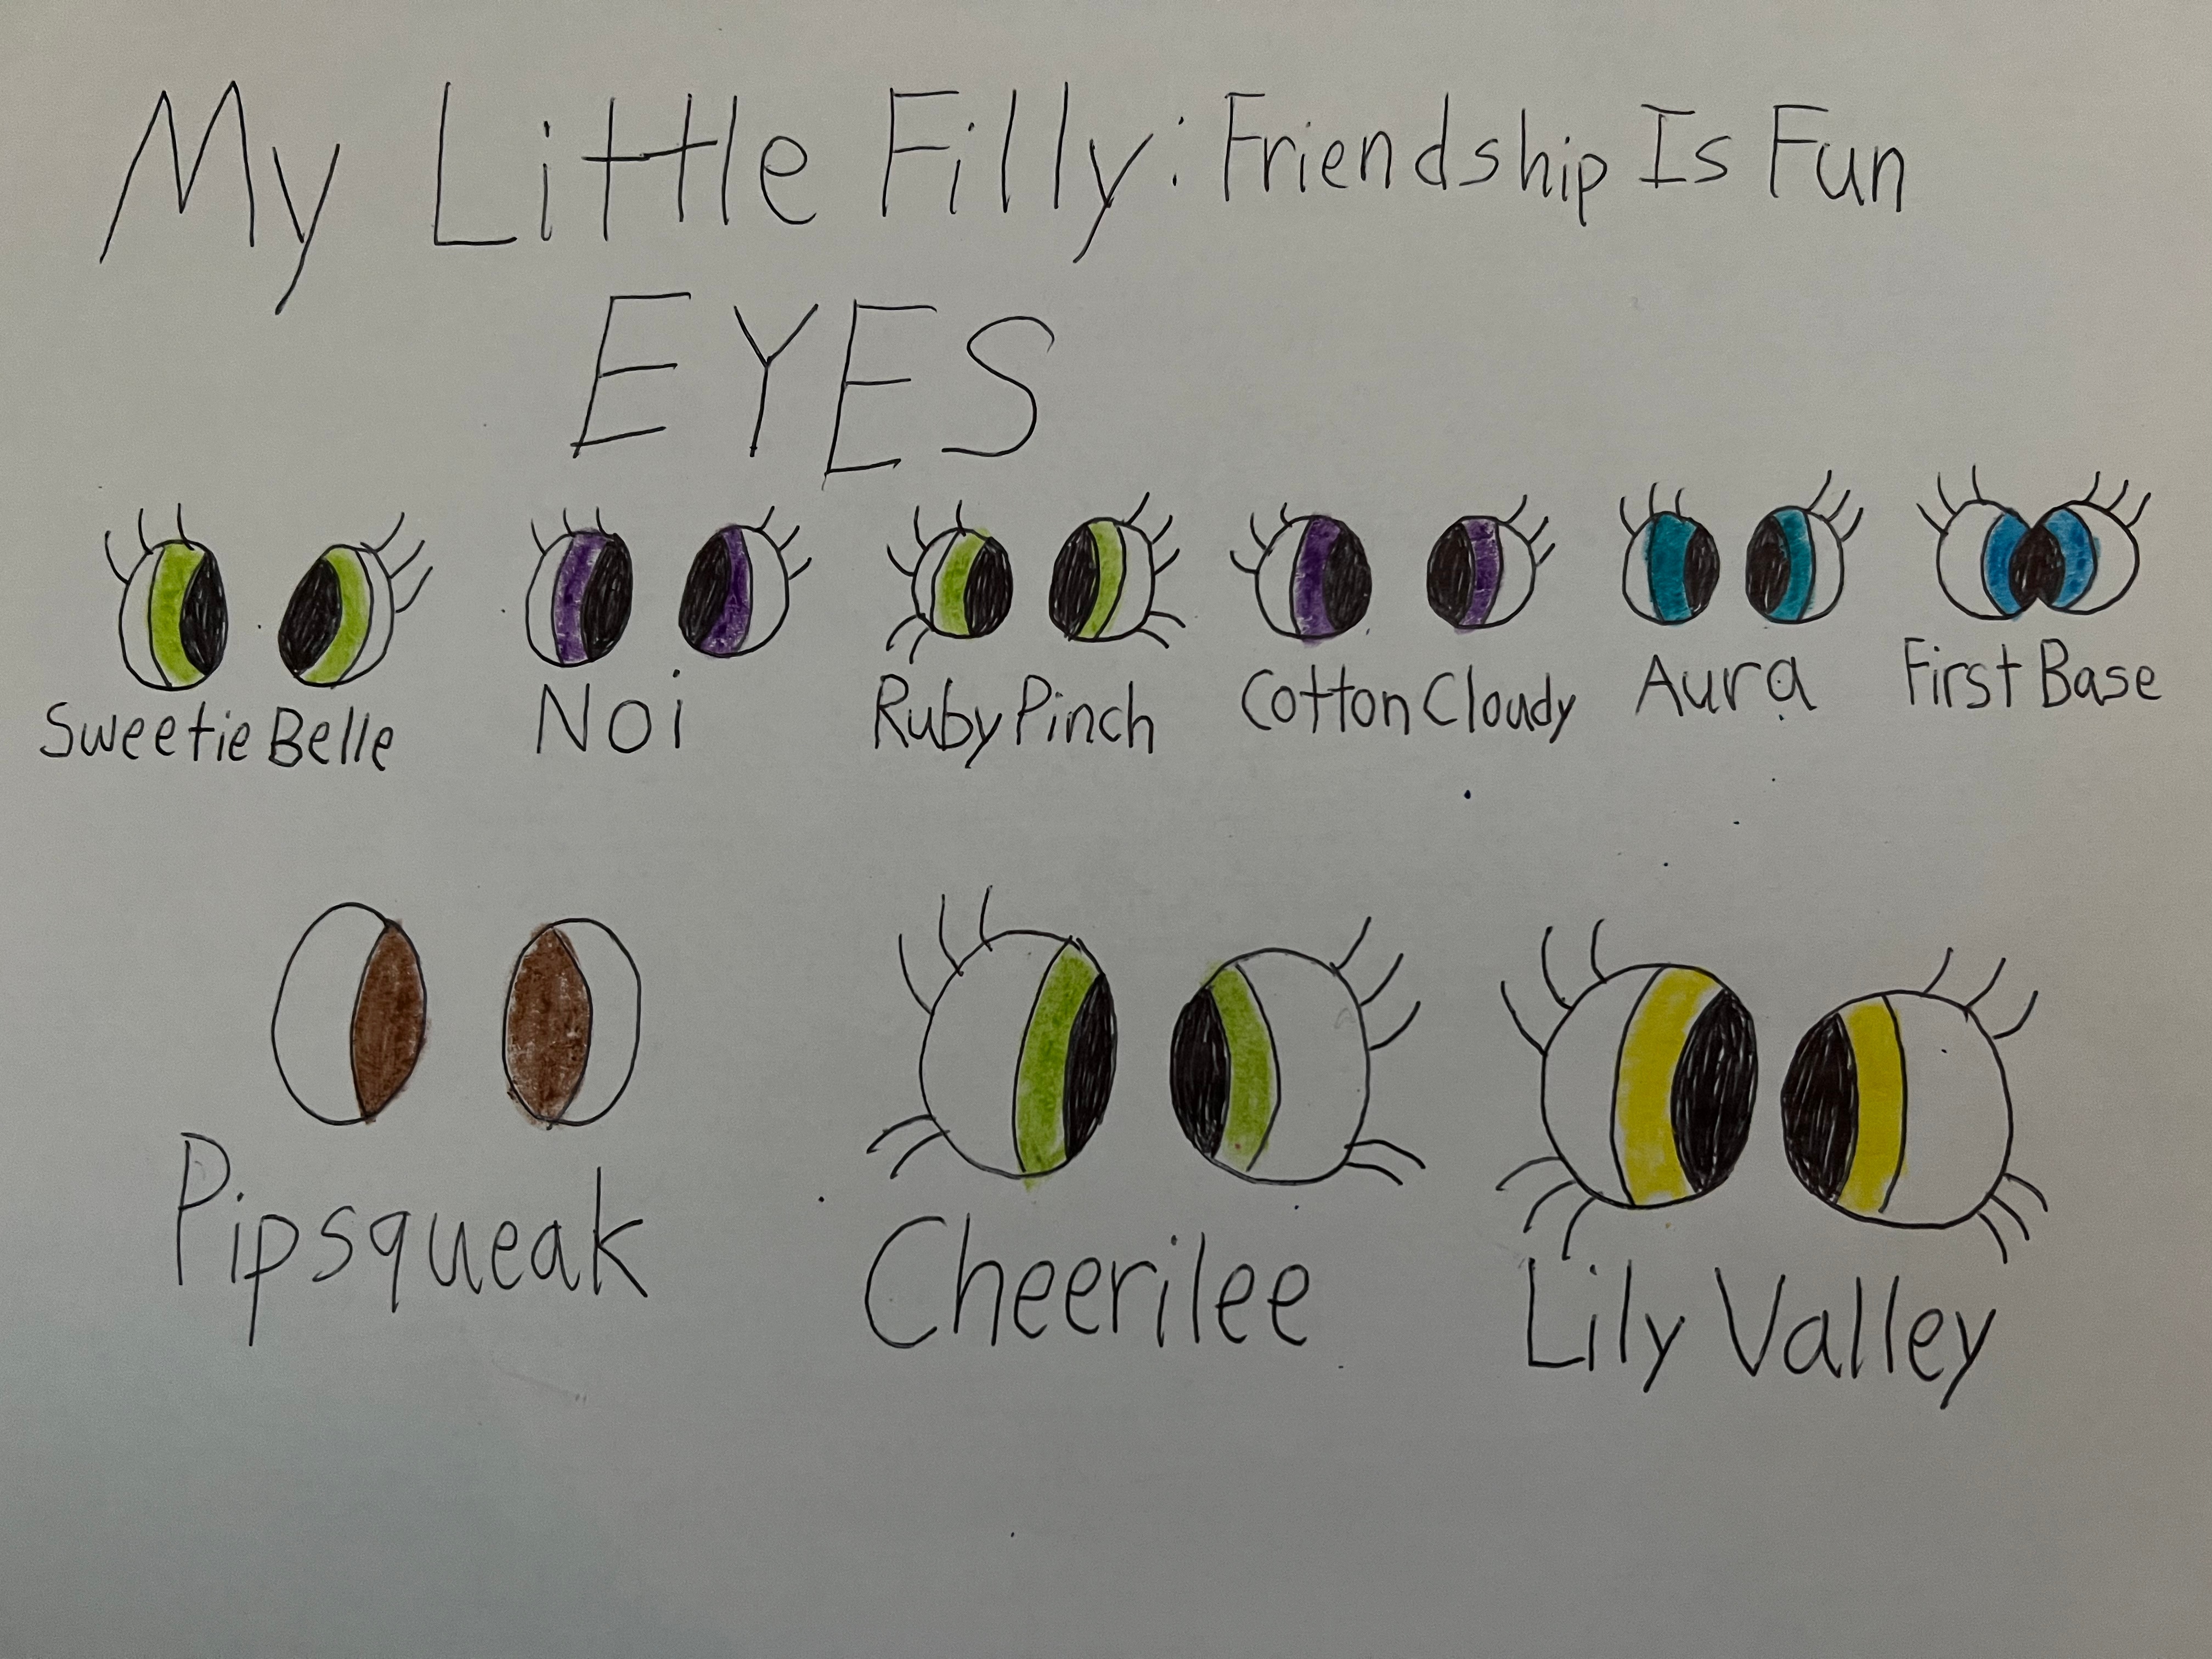 My Little Filly: Friendship Is Fun
EYES
Sweetie Belle Noi Ruby Pinch Cotton Cloudy Aura First Base
Pipsqueak Cheerilee Lily Valley